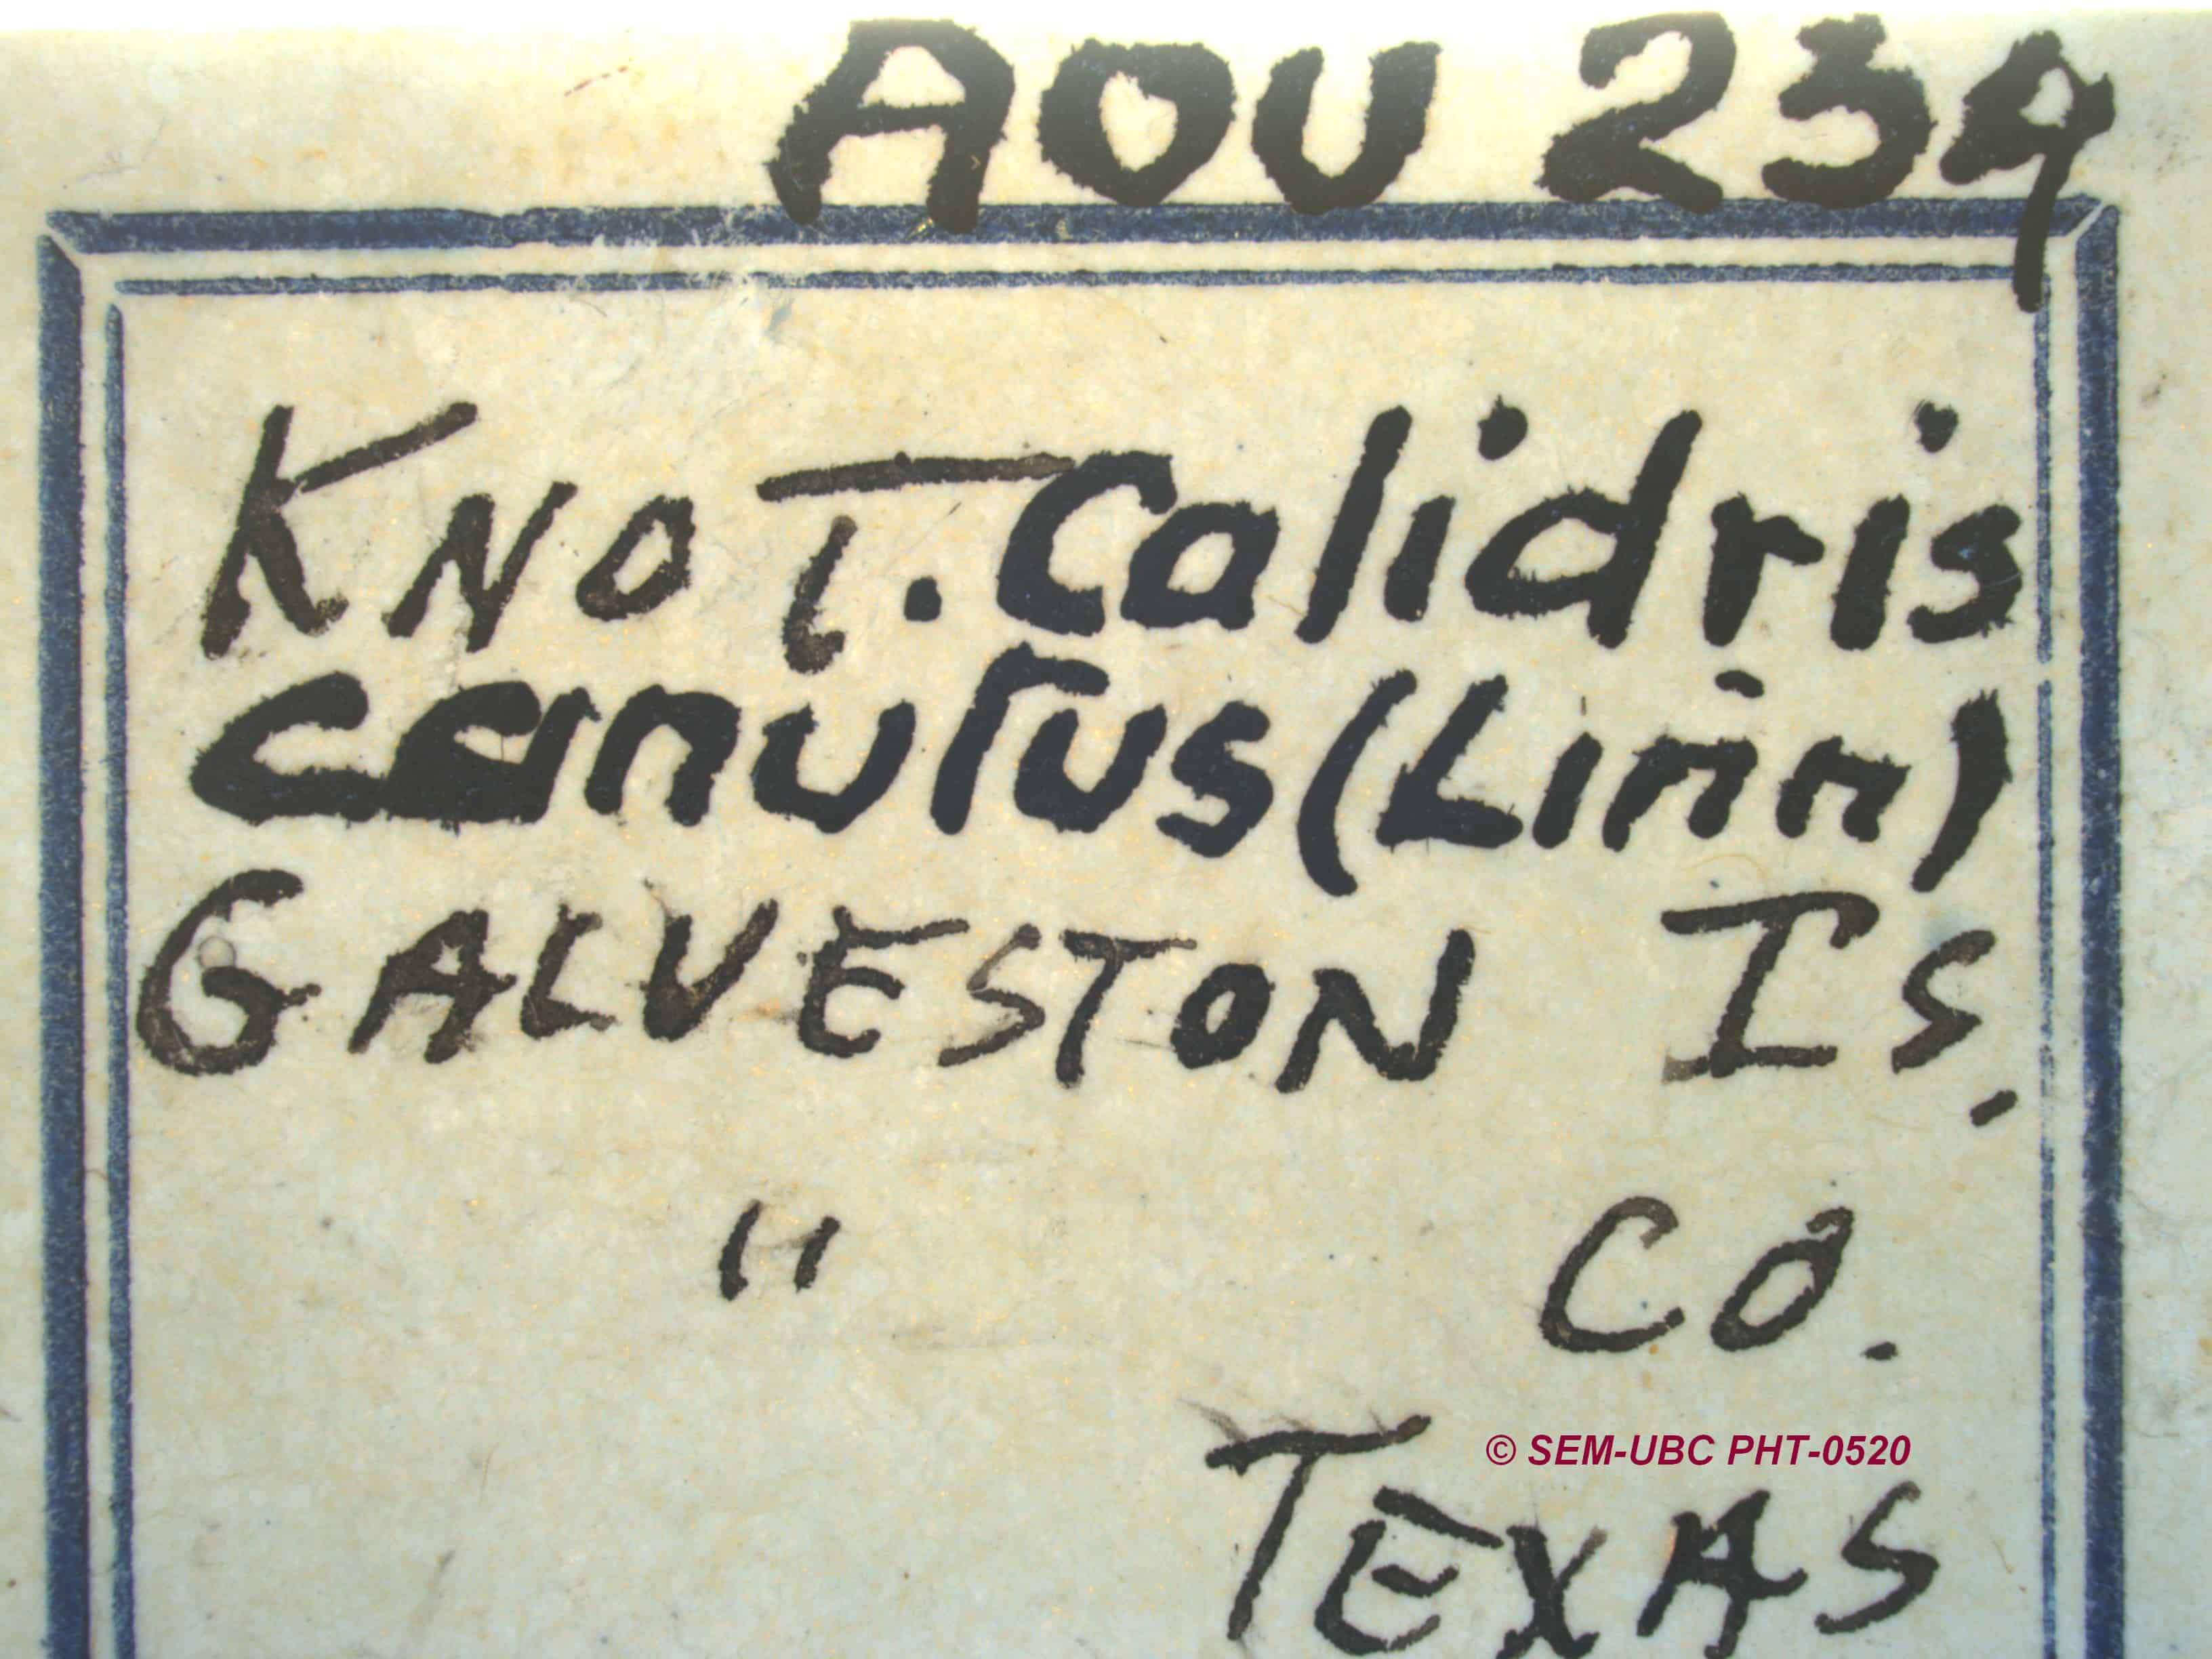 AOU 239
KNOT. Calidris
canutus (Linn)
GALVESTON Is.
" Co.
© SEM-UBC PHT-0520
TEXAS